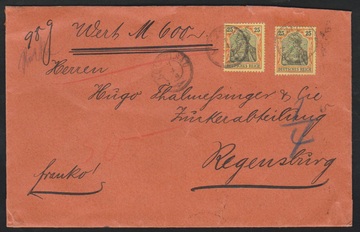 95 g
Wert M 600.-
25 25
DEUTSCHES REICH
25 25
DEUTSCHES REICH
Herren
Hugo Thalmessinger & Cie
Zuckerabteilung
Regensburg
franko!
4